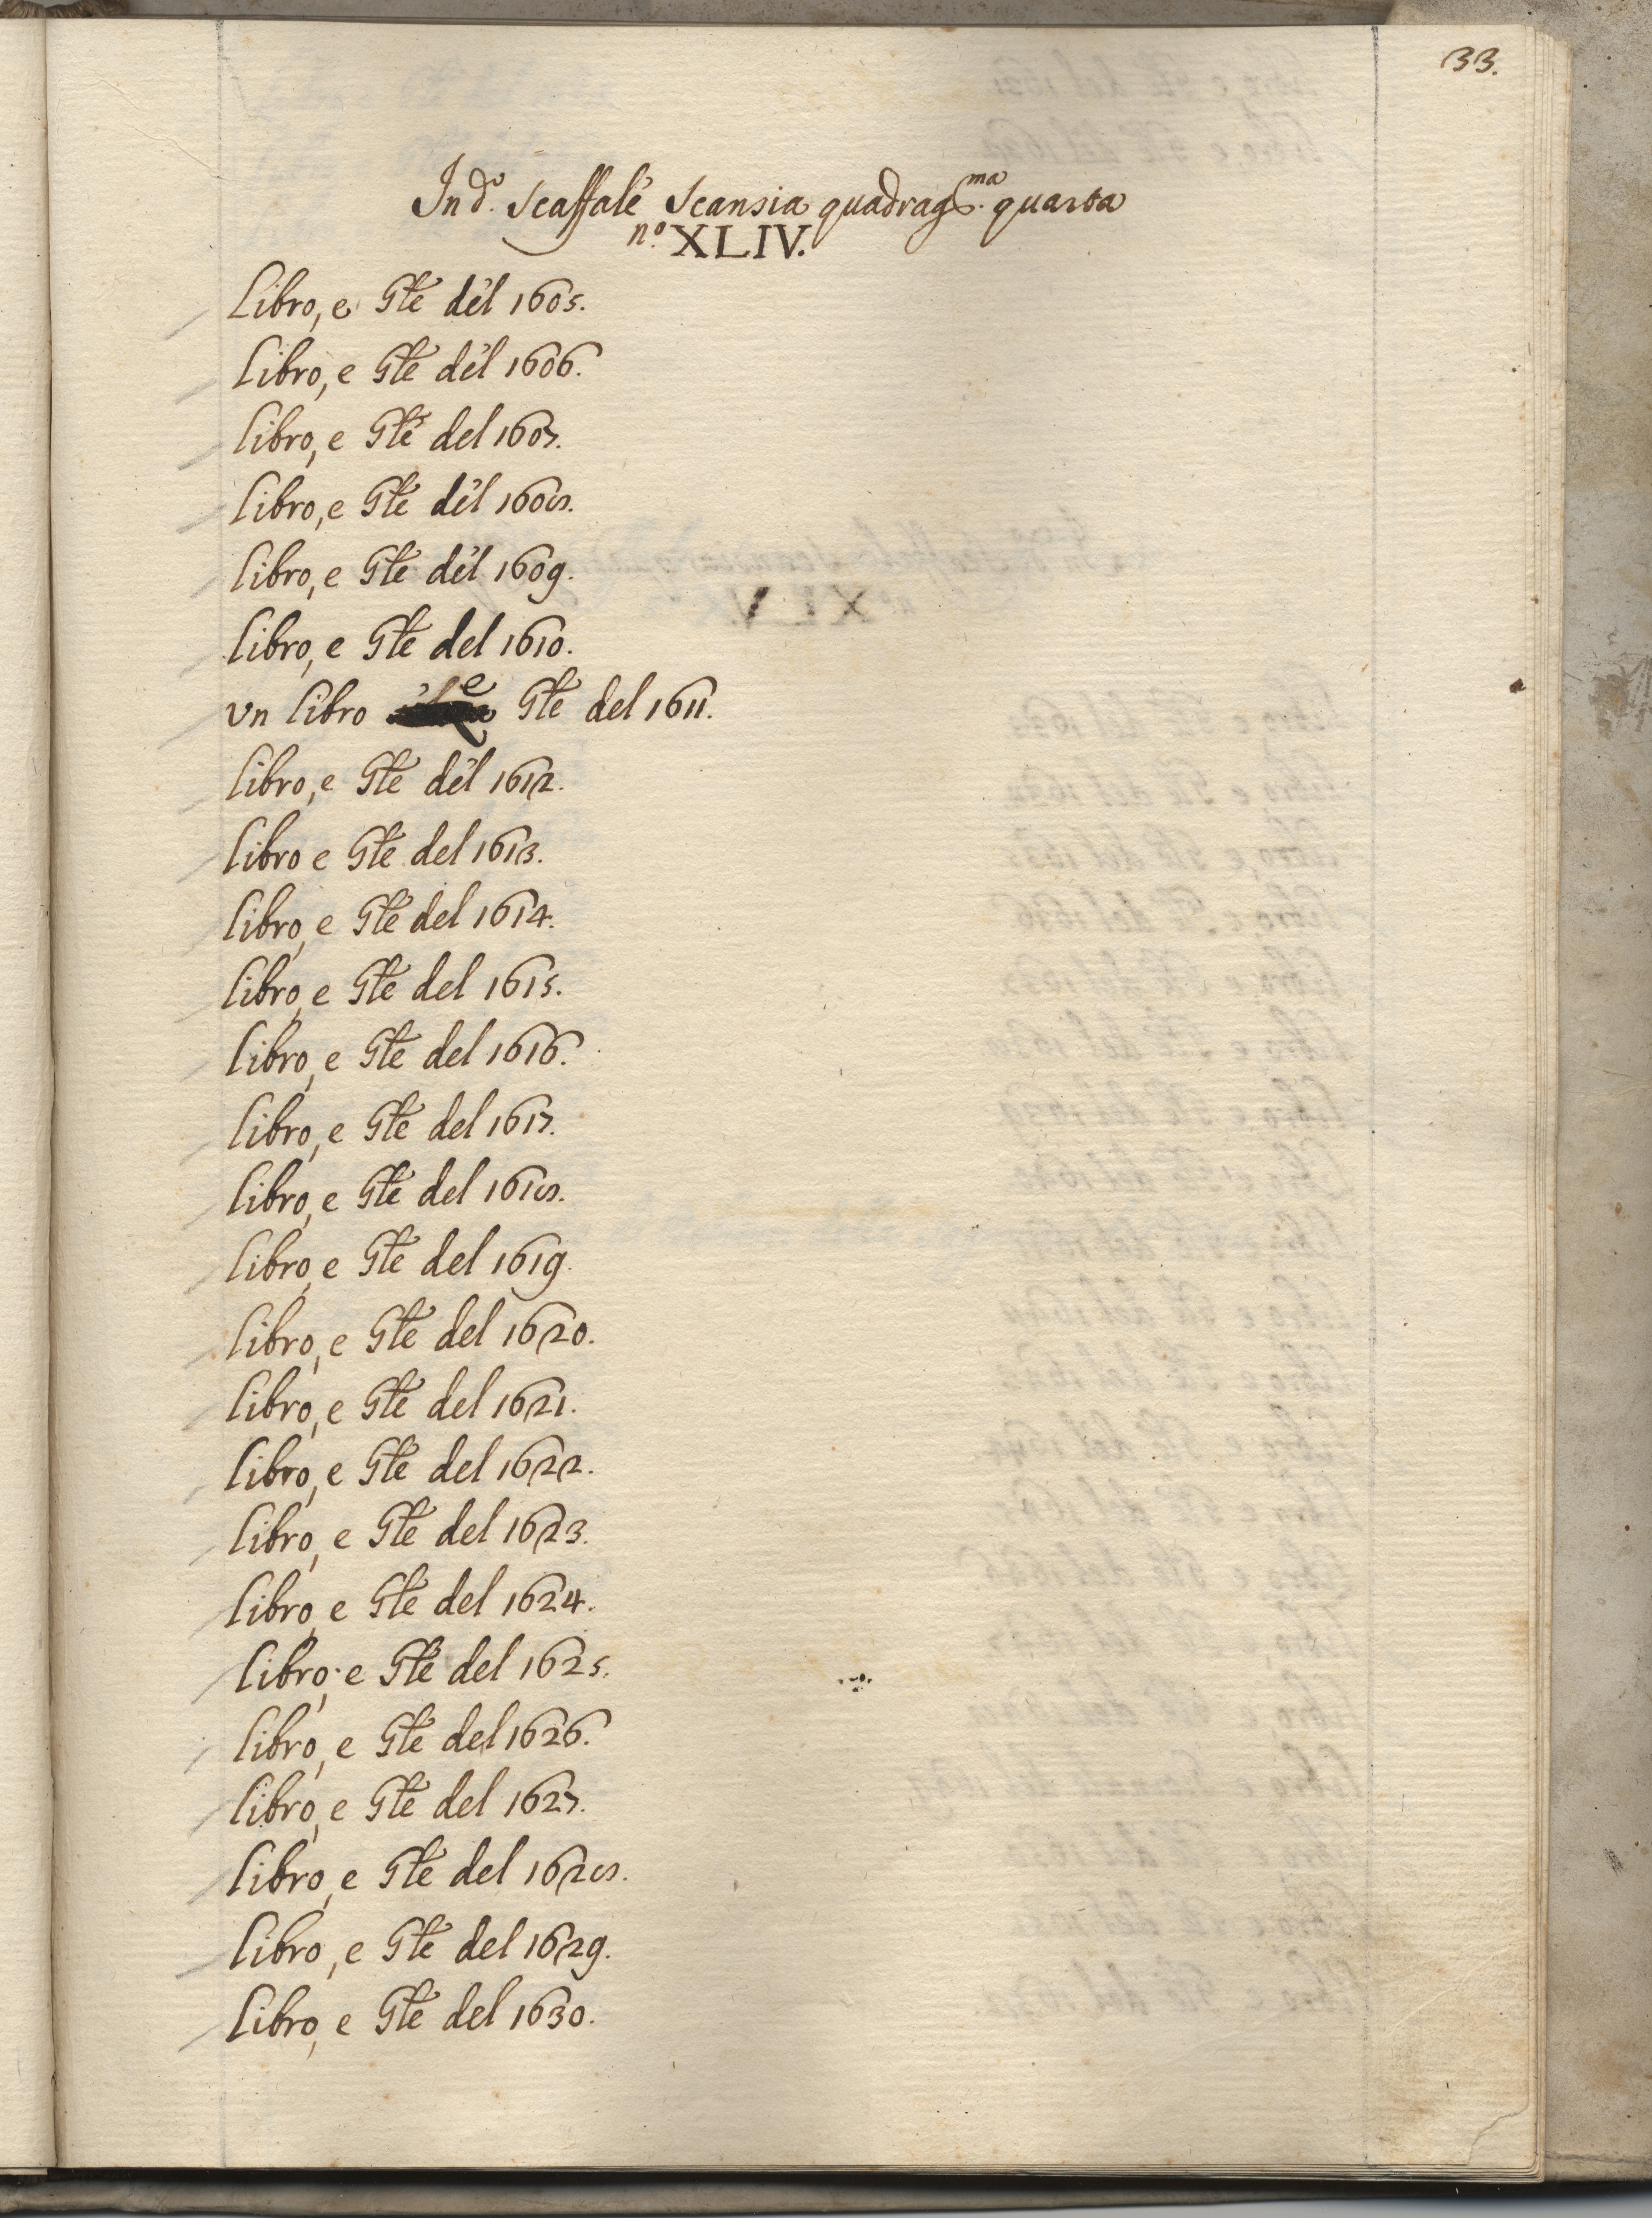 33.
In d.º Scaffale Scansia quadrag.ma quarta
n.º XLIV.
Libro, e Gte del 1605.
Libro, e Gte del 1606.
Libro, e Gte del 1607.
Libro, e Gte del 1608.
Libro, e Gte del 1609.
Libro, e Gte del 1610.
Vn Libro e Gte del 1611.
Libro, e Gte del 1612.
Libro e Gte del 1613.
Libro, e Gte del 1614.
Libro, e Gte del 1615.
Libro, e Gte del 1616.
Libro, e Gte del 1617.
Libro, e Gte del 1618.
Libro, e Gte del 1619.
Libro, e Gte del 1620.
Libro, e Gte del 1621.
Libro, e Gte del 1622.
Libro, e Gte del 1623.
Libro, e Gte del 1624.
Libro, e Gte del 1625.
Libro, e Gte del 1626.
Libro, e Gte del 1627.
Libro, e Gte del 1628.
Libro, e Gte del 1629.
Libro, e Gte del 1630.